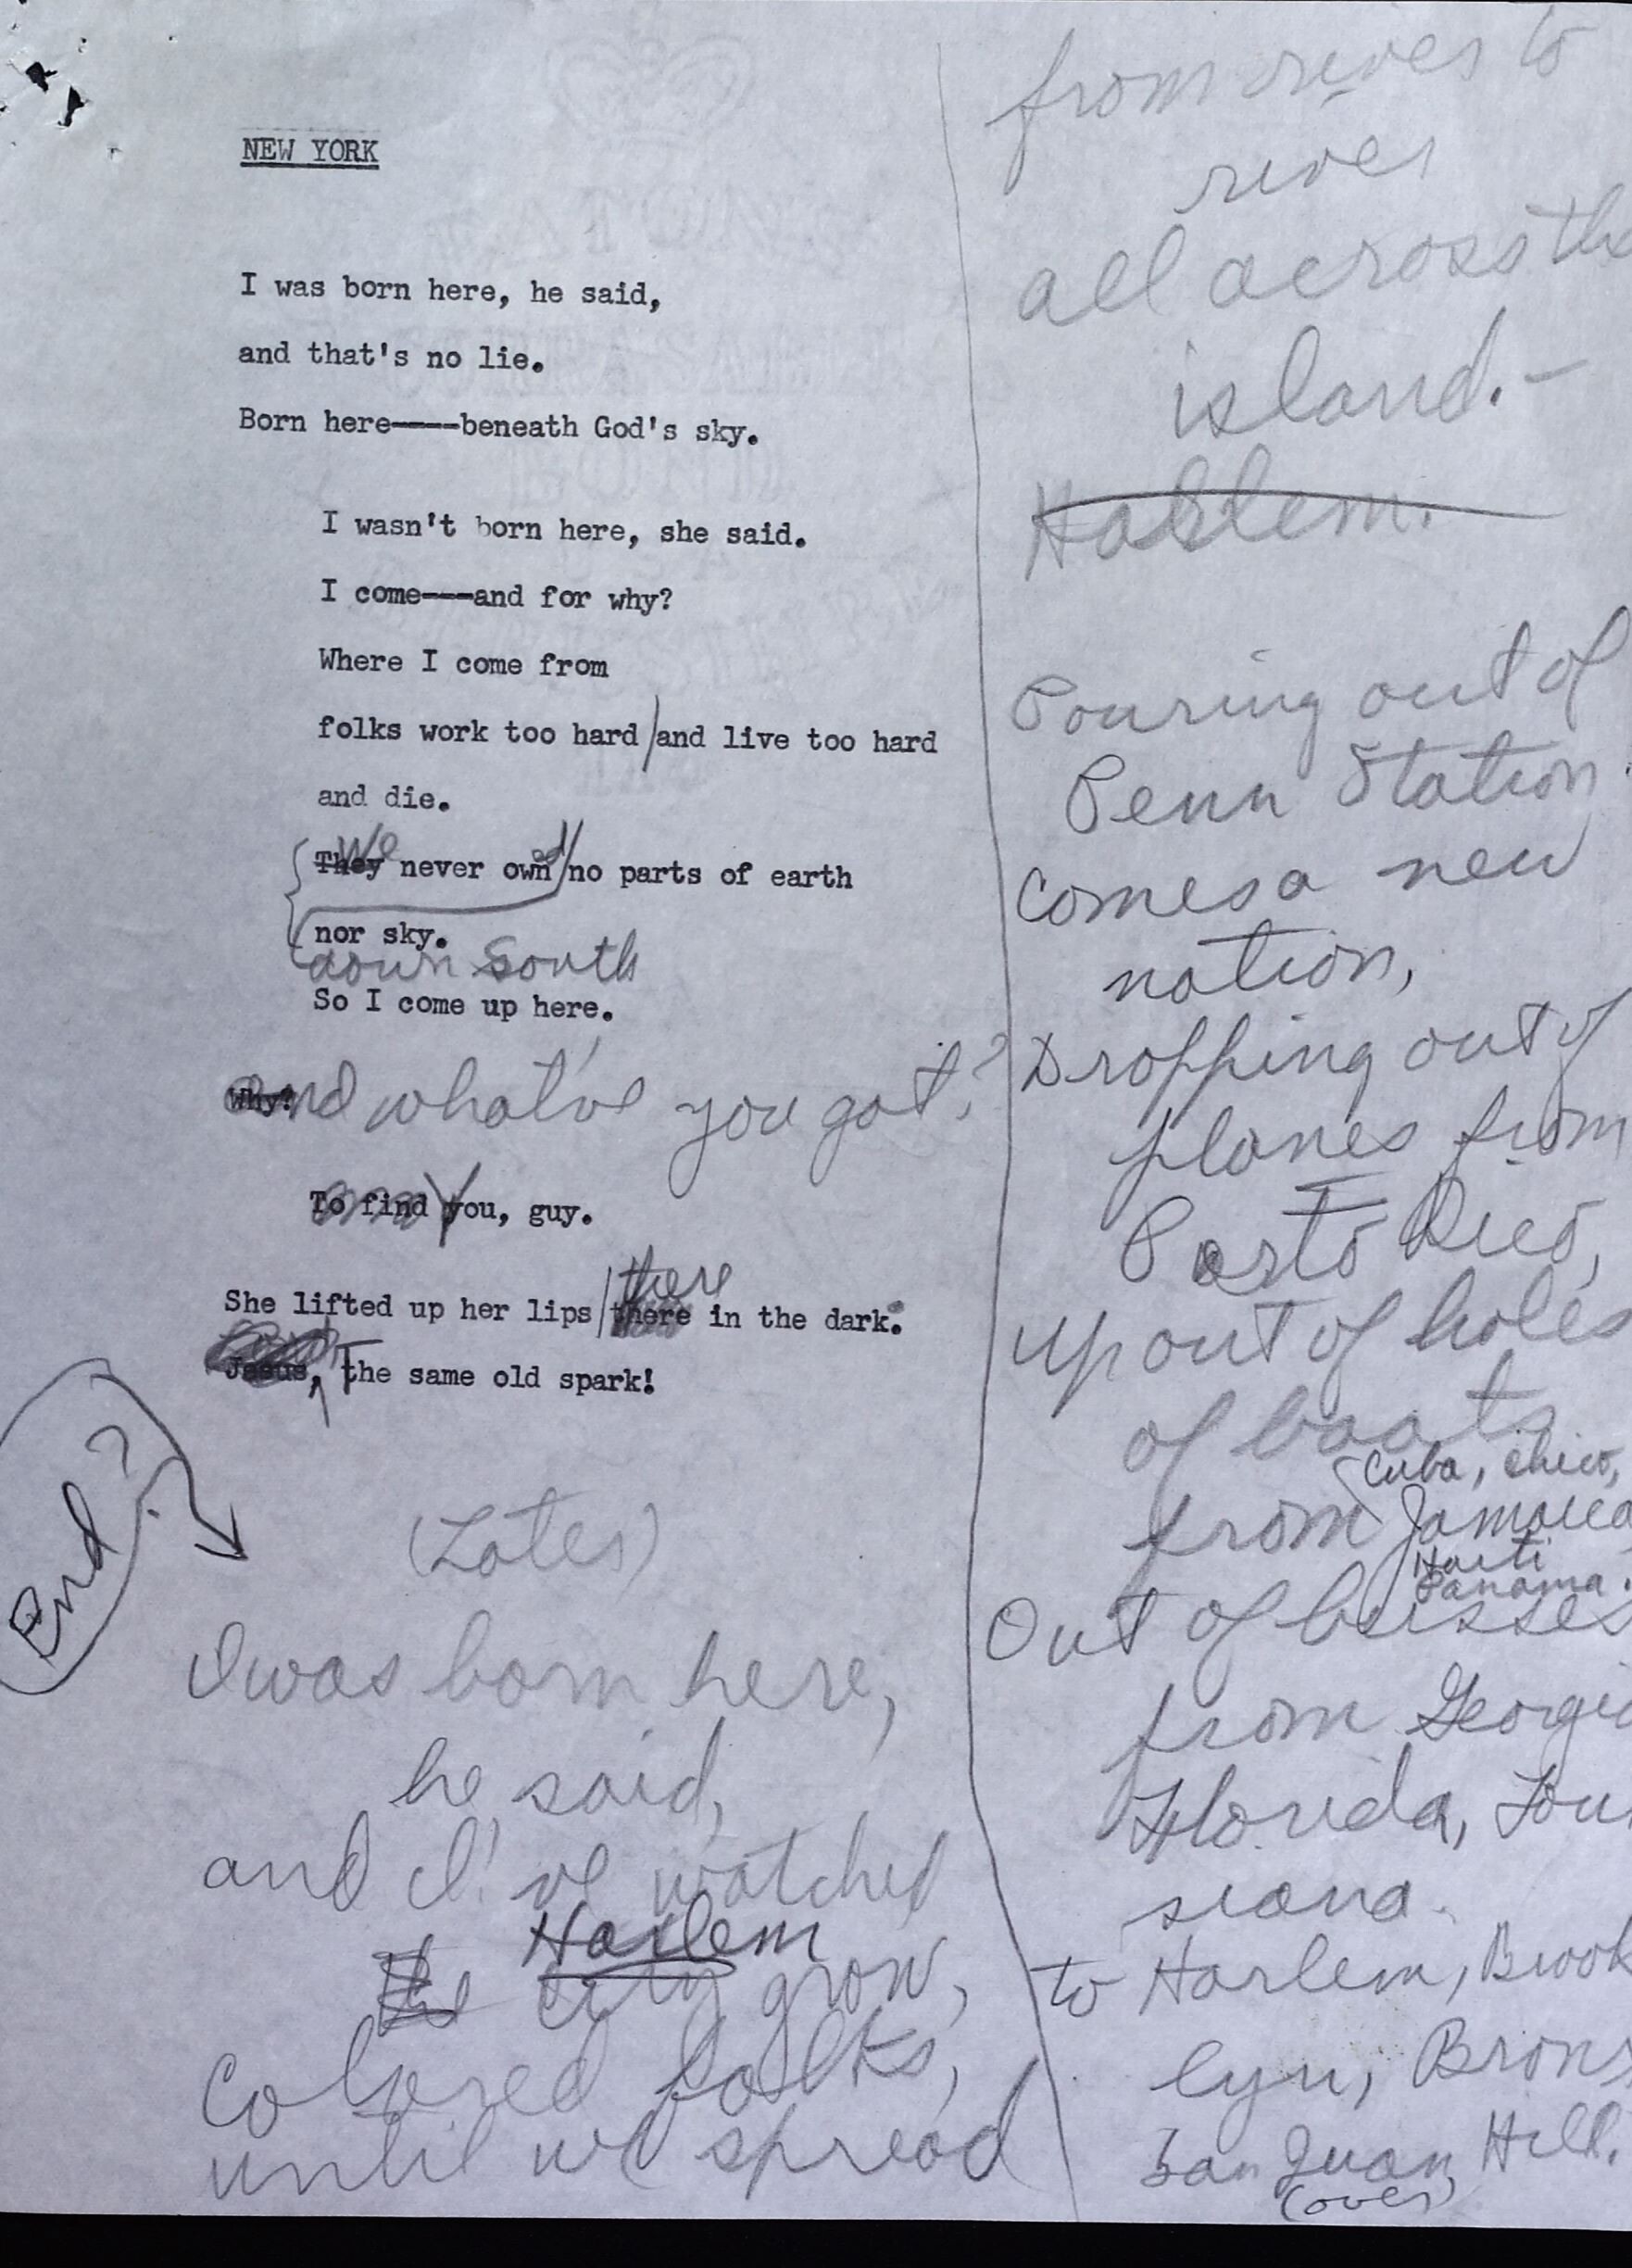 NEW YORK
I was born here, he said,
and that's no lie.
Born here----beneath God's sky.
I wasn't born here, she said.
I come---and for why?
Where I come from
folks work too hard/and live too hard
and die.
They We never owned/no parts of earth
nor sky.
down South
So I come up here.
Why? And what've you got?
To find you, guy.
She lifted up her lips/there there in the dark.
Jesus, The same old spark!
End?
(Later)
I was born here,
he said,
and I've watched
Harlem
the city grow,
colored folks,
until we spread
from river to
river
all across the
island. —
Harlem.
Pouring out of
Penn Station
comes a new
nation,
Dropping out of
planes from
Porto Rico,
up out of holes
of boats
Cuba, chico,
from Jamaica
Haiti
Panama.
Out of busses
from Georgia
Florida, Loui
siana
to Harlem, Brook
lyn, Bronx
San Juan Hill.
(over)